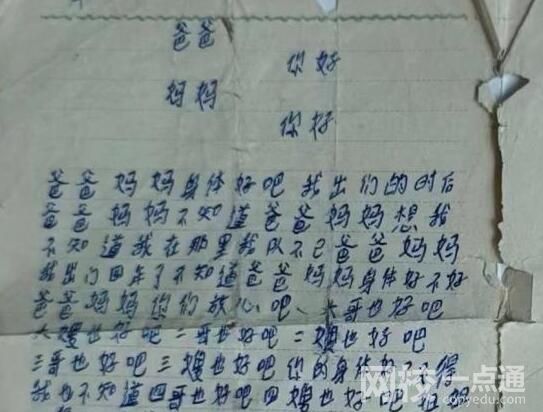 爸爸
你好
妈妈
你好
爸爸妈妈身体好吧我出们的时后
爸爸妈妈不知道爸爸妈妈想我
不知道我在那里我以不已爸爸妈妈
我出们四年了不知道爸爸妈妈身体好不好
爸爸妈妈你们放心吧、大哥也好吧
大嫂也好吧二哥也好吧二嫂也好吧
三哥也好吧三嫂也好吧你的身体好不得
我也不知道四哥也好吧四嫂也好吧
网校一点通